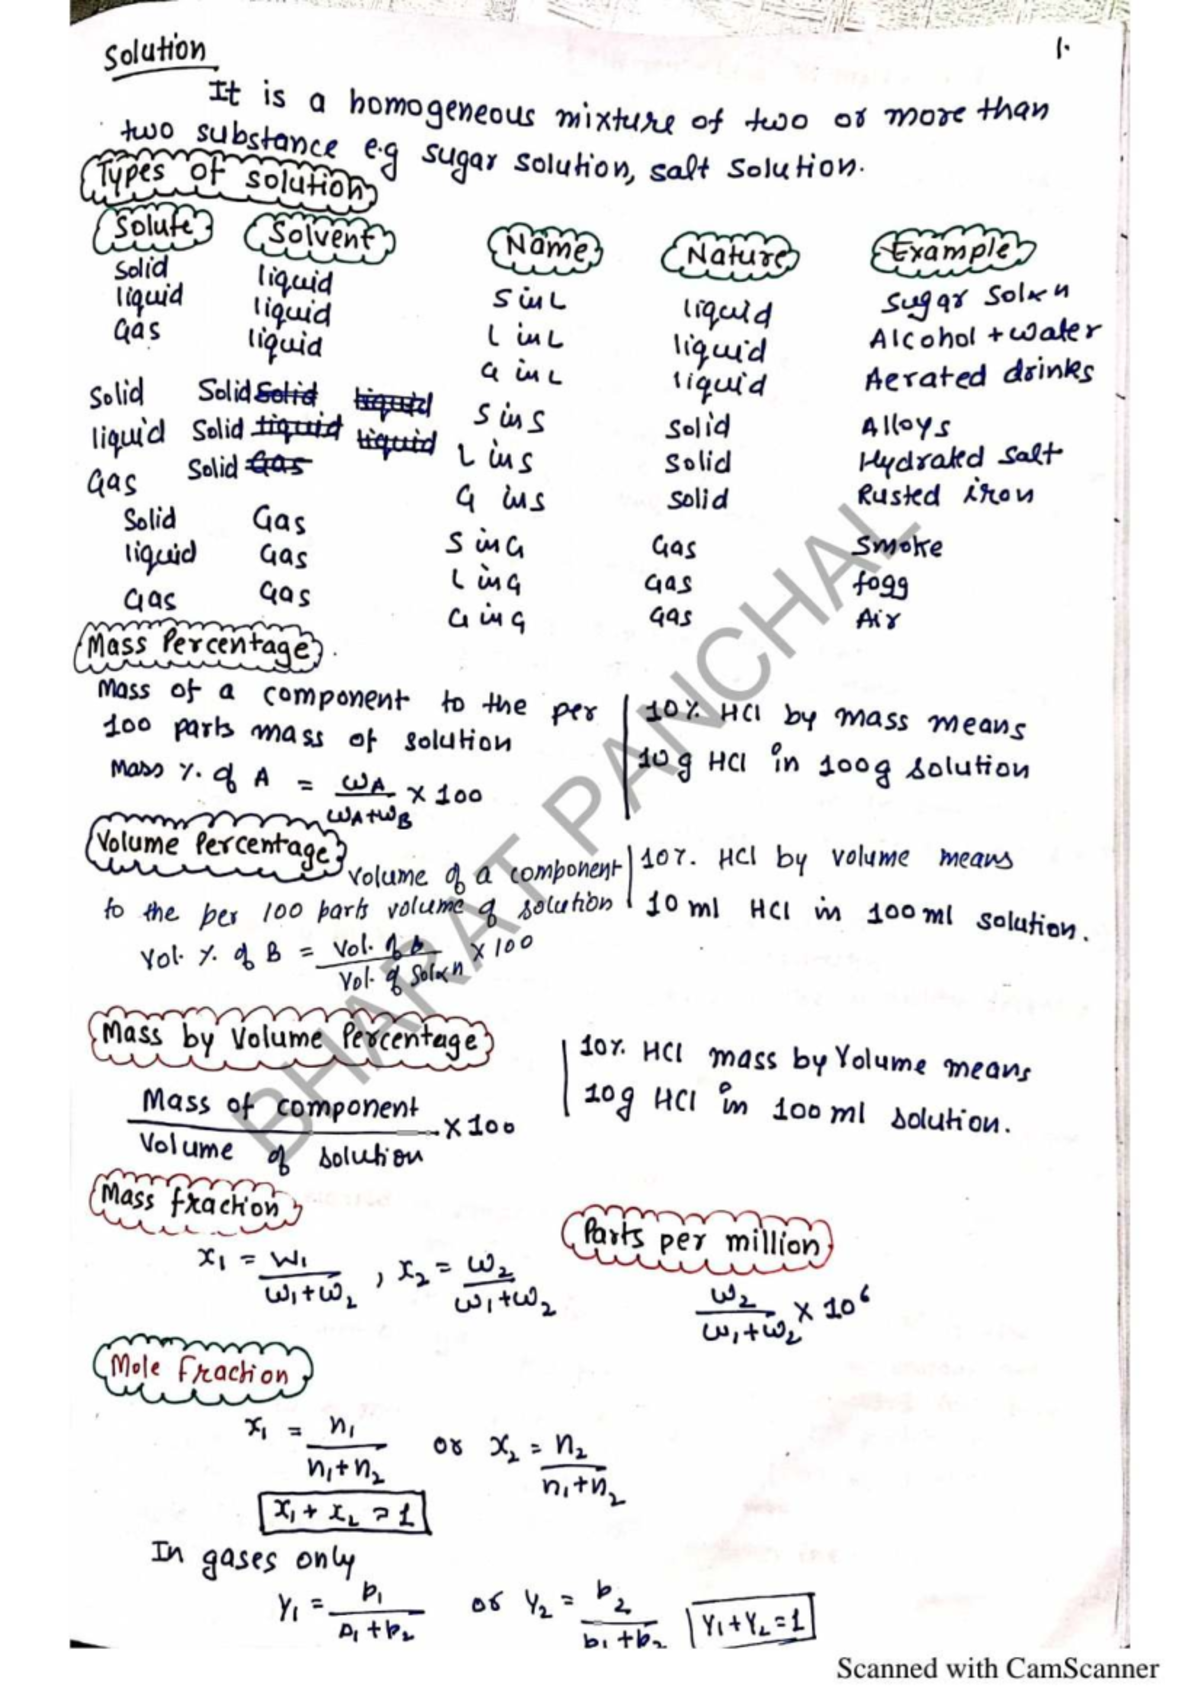 Solution
1.
It is a homogeneous mixture of two or more than
two substance e.g sugar solution, salt solution.
Types of solution
Solute Solvent Name Nature Example
Solid liquid S in L liquid Sugar Solxn
liquid liquid L in L liquid Alcohol + water
Gas liquid G in L liquid Aerated drinks
Solid Solid Solid liquid S in S Solid Alloys
liquid Solid liquid liquid L in S Solid Hydrated salt
Gas Solid Gas G in S Solid Rusted iron
Solid Gas S in G Gas Smoke
liquid Gas L in G Gas fogg
Gas Gas G in G Gas Air
Mass Percentage
Mass of a component to the per
100 parts mass of solution
Mass % of A = ωA/ωA+ωB × 100
10% HCl by mass means
10g HCl in 100g solution
Volume Percentage
Volume of a component
to the per 100 parts volume of solution
Vol. % of B = Vol. of b/Vol. of Solxn × 100
10%. HCl by volume means
10 ml HCl in 100 ml solution.
Mass by Volume Percentage
Mass of component/Volume of solution × 100
10% HCl mass by Volume means
10g HCl in 100 ml solution.
Mass fraction
x1 = W1/ω1+ω2 , x2 = ω2/ω1+ω2
Parts per million
ω2/ω1+ω2 × 10^6
Mole Fraction
x1 = n1/n1+n2 or x2 = n2/n1+n2
x1 + x2 = 1
In gases only
Y1 = p1/p1+p2 or Y2 = p2/p1+p2 Y1+Y2=1
BHARAT PANCHAL
Scanned with CamScanner